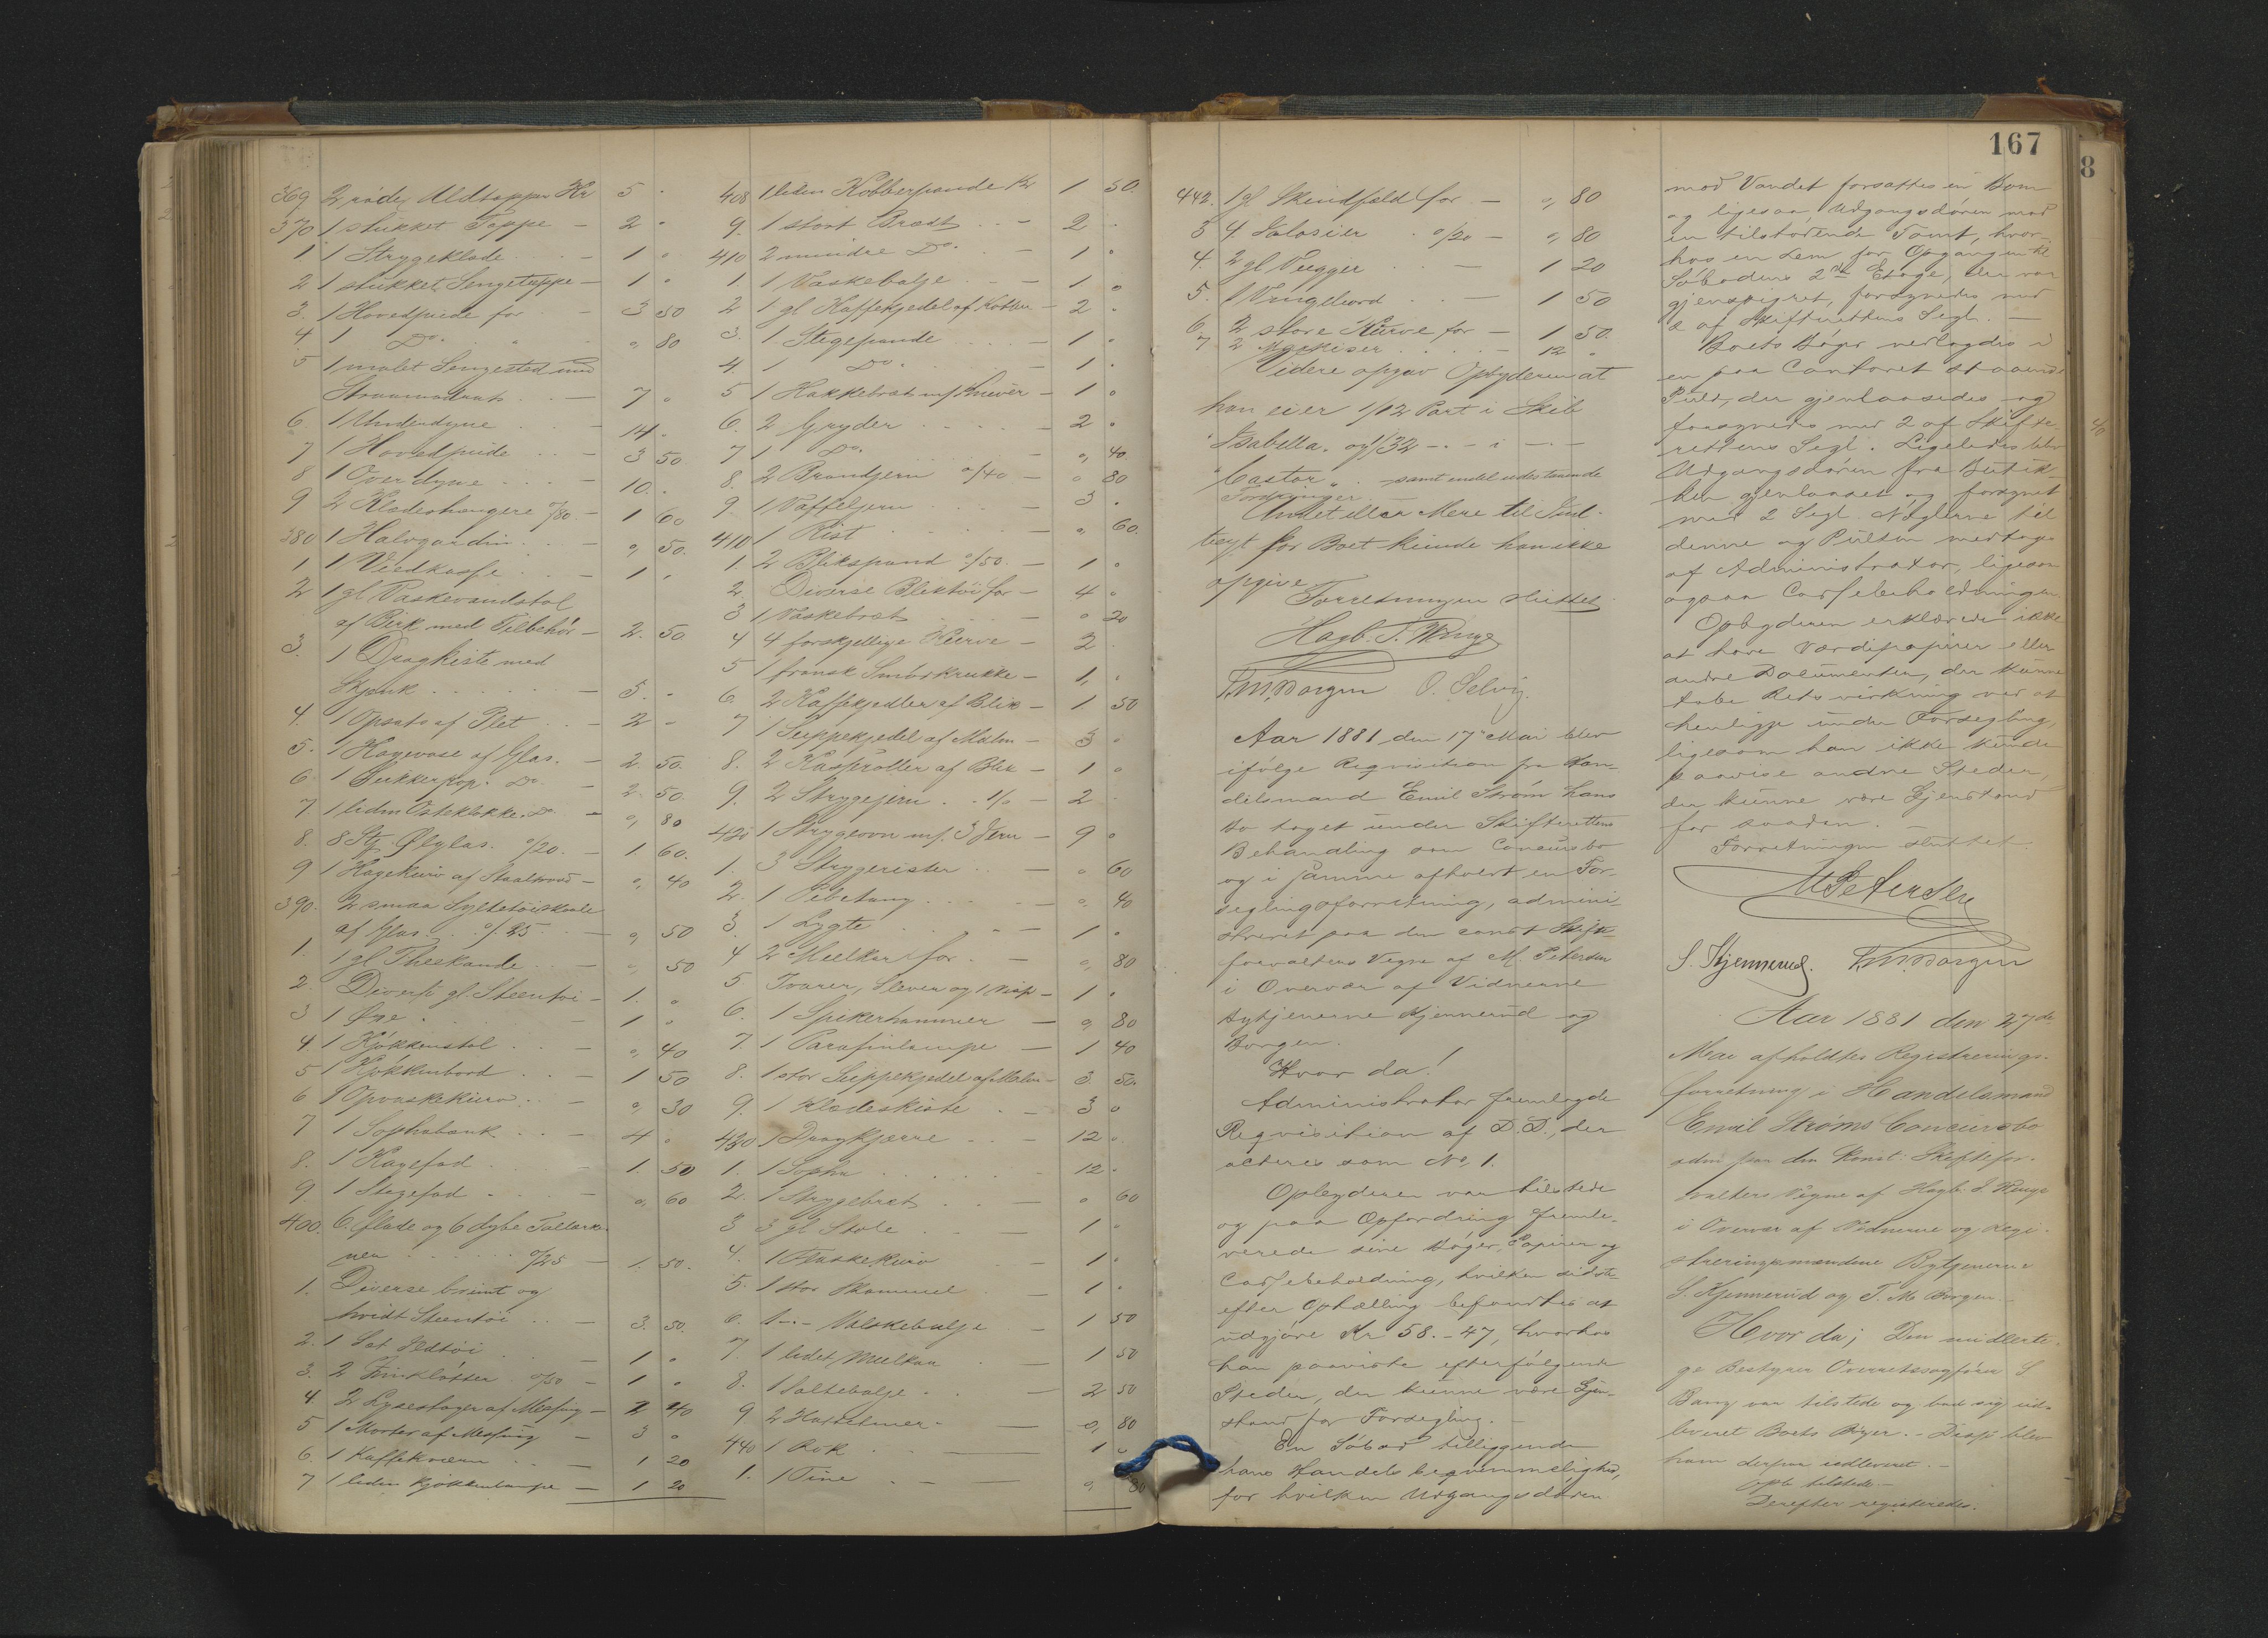 369 2 røde Uldtepper Kr 5 "
370 1 stukket Teppe - 2 "
1 1 Strygeklæde - 1 "
2 1 stukket Sengeteppe - 1 "
3. 1 Hovedpude for - 3 50
4 1 Do. " 80
5 1 malet Sengested med
Straamadrats - 7 "
6. 1 Underdyne - 14 "
7 1 Hovedpude - 3 50
8 1 Overdyne - 10. "
9 2 Klædeshengere %80 - 1 60
380 1 Halvgardin - " 50.
1 1 Vedkasse - 1 "
2 1 gl Vaskevandstol
af Birk med Tilbehør - 2. 50
3. 1 Dragkiste med
Skjænk - 5. "
4. 1 Opsats af Plet - 2 -
5. 1 Havevase af Glas. - 2. 50.
6 1 Sukkerkop. Do - 2. 50.
7. 1 liden Osteklokke. Do - " 80
8. 8 Stk Ølglas. %20. - 1. 60.
9 1 Kagekurv af Staaltraad - " 40
390. 2 smaa Syltetøiskaale
af Glas %25 - " 50
1. 1 gl Theekande - " 50
2. Diverse gl. Steentøi - 1. "
3 1 Øxe - 1 "
4. 1 Kjøkkenstol - " 40
5 1 Kjøkkenbord - 1 50
6 1 Opvaskekurv - " 30
7 1 Sophabænk - 4 "
8. 1 Kagefad - 1. 50
9. 1 Stegefad - " 60
400. 6 flade og 6 dybe Tallærke-
ner %25 - 1. 50.
1. Diverse brunt og
hvidt Steentøi - 3. 50.
2. 1 Sæt Ildtøi - 1 "
3. 2 %50 - 1 "
4. 2 Lysestager af Messing - 2 40
5 1 Morter af Messing - 3 "
6. 1 Kaffekværn - 1 20
7 1 liden Kjøkkenlampe - 1 20
408 1 liden Kobberpande Kr 1 50.
9. 1 stort Bræt - 2 "
410 2 mindre Do. - 1 "
1 1 Vaskebalje - 1 "
2 1 gl Kaffekjedel af Kobber - 2 "
3. 1 Stegepande - 1 "
4. 1 Do. - 1 "
5 1 Hakkebræt m/ Kniver - 1 "
6. 2 Gryder - 2 "
7 1 Do. - " 40
8. 2 Brandjern %40 - " 80
9. 1 Vaffeljern - 3 "
410 1 Rist - " 60.
1. 2 Blikspand %50 - 1 "
2. Diverse Bliktøi for - 4 "
3 1 Vaskebræt - " 20
4 4 forskjellige Kurve - 2
5 1 fransk Smørkrukke - 1, "
6. 2 Kaffekjedler af Blik - 1 50
7 1 Suppekjedel af Malm - 3 "
8. 2 Kasseroller af Blik - 1 "
9. 2 Strygejern 1/0 - 2 "
420 1 Strygeovn m/ 3 Jern - 9 "
1. 3 Strygerister - " 60
2. 1 - " 40
3. 1 Lygte - 1 "
4 2 Melkekar for - " 80
5 Tvarer, Slever og 1 Visp - 1 "
6. 1 Spikerhammer - " 80
7. 1 Parafinlampe - 1 40
8. 1 stor Suppekjedel af Malm - 3 50.
9. 1 Klædeskiste - 3 "
430 1 Dragkjærre - 12 "
1. 1 Sopha 12 "
2. 1 Strygebræt - " 60
3 3 gl Stole - 1 "
4. 1 Flaskekurv - 1 "
5. 1 stor Skammel - 1 "
6. 1 -"- Vaskebalje - 1 50
7. 1 lidet Meelkar - 1 50
8. 1 Saltebalje - 2 50
9 2 - " 80
440 1 Rok - 1 "
1. 1 Tine - " 80
167
442. 1 gl Skindfæld for - " 80
3 4. Salosier %20 - " 80
4. 2 gl Vugger - 1 20
5. 1 Vengebord - 1 50
6. 2 store Kurve for - 1 50.
7. 2 - 12 "
Videre opgav Opbyderen at
han eier 1/12 Part i Skib
"Isabella" og 1/32 -"- i -"-
"Castor" samt endel udestaaende
Fordringer.
Andet eller Mere til Ind-
tægt for Boet kunde han ikke
opgive
Forretningen sluttet.
Hagb. S. Winge
T.M. Borgen O. Selvig.
Aar 1881 den 17de Mai blev
ifølge Reqvisition fra Han-
delsmand Emil Strøm hans
Bo taget under Skifterettens
Behandling som Concursbo
og i samme afholdt en For-
seglingsforretning, admini-
streret paa den const Skifte-
forvalters Vegne af M. Petersen
i Overvær af Vidnerne
Bytjenerne Kjennerud og
Borgen.
Hvor da!
Administrator fremlagde
Reqvisition af D. D., der
acteres som No 1.
Opbyderen var tilstede
og paa Opfordring fremle-
verede sine Bøger, Papirer og
Cassebeholdning, hvilken sidste
efter Optælling befandtes at
udgjøre Kr 58.-47, hvorhos
han paaviste efterfølgende
Steder, der kunne være Gjen-
stand for Forsegling. -
En Søbod tilliggende
hans Handels beqvemmelighed,
for hvilken Udgangsdøren
mod Vandet forsattes en Bom
og ligesaa, Udgangsdøren mod
en tilstødende Tomt, hvor-
hos en Lem for Opgangen til
Søbodens 2den Etage, der var
gjenspigret, forsynedes med
2 af Skifterettens Segl. -
Boets Bøger nedlagdes i
en paa Contoret staaende
Pult, der gjenlaasedes og
forsynedes med 2 af Skifte-
rettens Segl. Ligeledes blev
Udgangsdøren fra Butik-
ken gjenlaaset og forsynet
med 2 Segl. Nøglerne til
denne og Pulten medtoges
af Administrator, ligesom
ogsaa Cassebeholdningen.
Opbyderen erklærede ikke
at have Værdipapirer eller
andre Documenter, der kunne
tabe Retsvirkning ved at
henligge under Forsegling,
ligesom han ikke kunde
paavise andre Steder,
der kunne være Gjenstand
for saadan. -
Forretningen sluttet.
M Petersen
S. Kjennerud. T.M. Borgen
Aar 1881 den 27de
Mai afholdtes Registrerings-
forretning i Handelsmand
Emil Strøms Concursbo
adm paa den Konst. Skiftefor-
valters Vegne af Hagb. S. Winge
i Overvær af Vidnerne og Regi-
streringsmændene Bytjenerne
S. Kjennerud og T. M. Borgen.
Hvor da; Den midlerti-
ge Bestyrer Overretssagfører S.
Bang var tilstede og bad sig ud-
leveret Boets Bøger. - Disse blev
ham derpaa udleveret. -
Opb. tilstede -
Derefter registreredes.